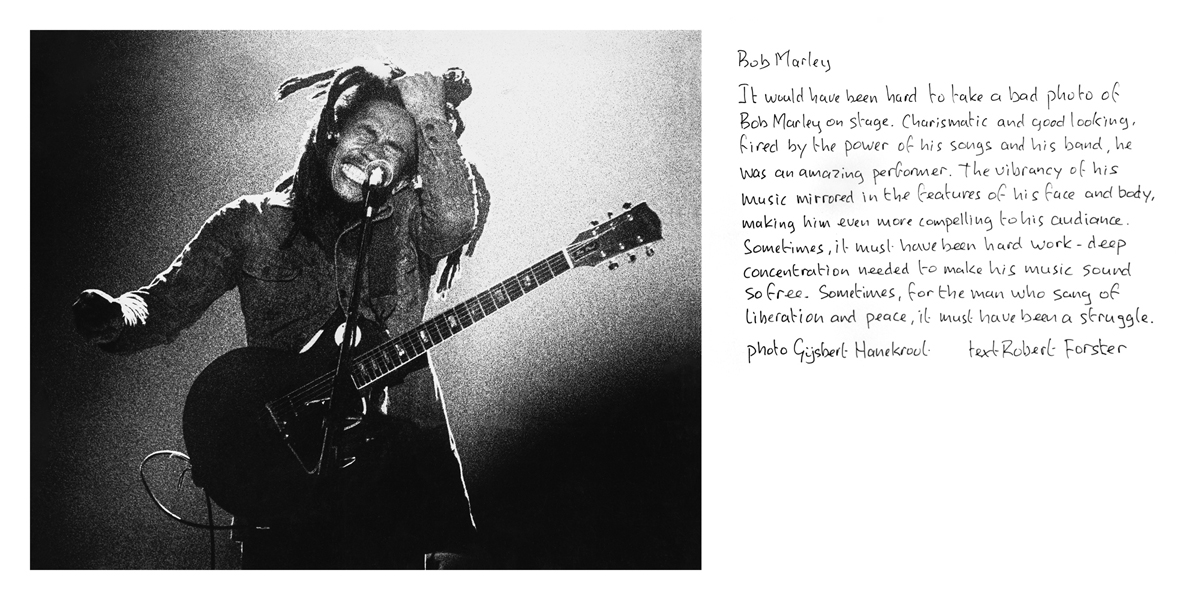 Bob Marley
It would have been hard to take a bad photo of
Bob Marley on stage. Charismatic and good looking,
fired by the power of his songs and his band, he
was an amazing performer. The vibrancy of his
music mirrored in the features of his face and body,
making him even more compelling to his audience.
Sometimes, it must have been hard work - deep
concentration needed to make his music sound
so free. Sometimes, for the man who sang of
liberation and peace, it must have been a struggle.
photo Gijsbert Hanekroot text Robert Forster